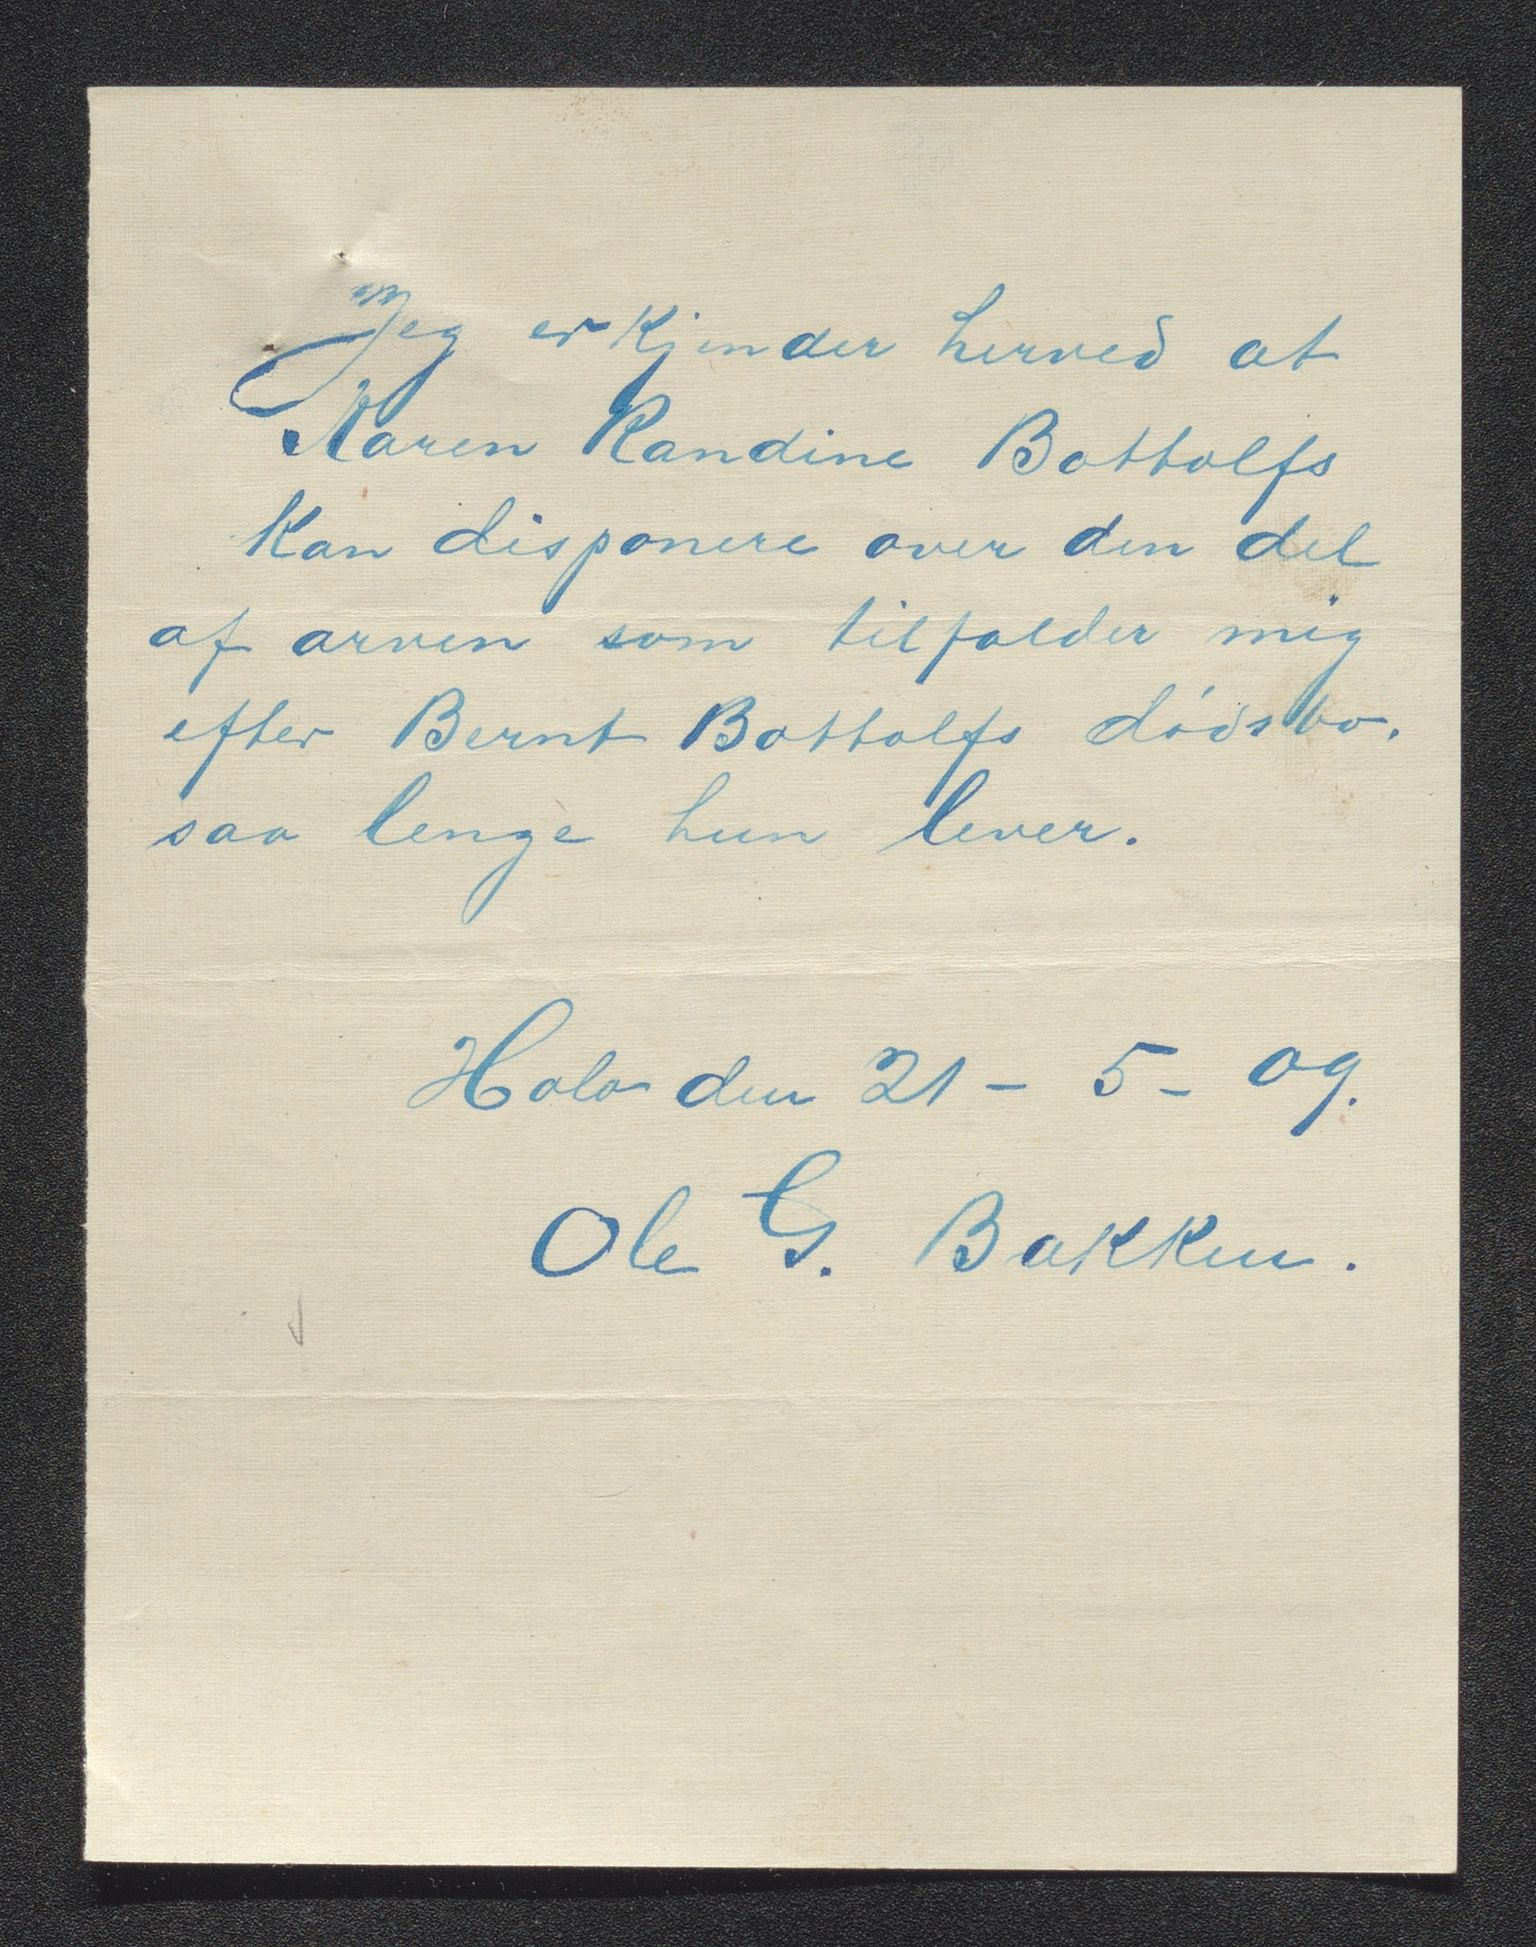 Jeg erkjender herved at
Karen Randine Bottolfs
Kan disponere over den del
af arven som tilfalder mig
efter Bernt Bottolfs dødsbo.
saa lenge hun lever.
Hola den 21 - 5 - 09.
Ole G. Bakken.